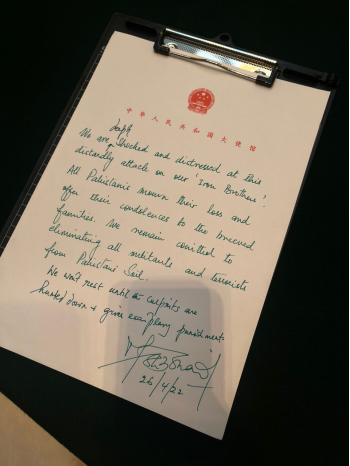 中华人民共和国大使馆
deeply
We are shocked and distressed at this
dastardly attack on our 'Iron Brothers'.
All Pakistanis mourn their loss and
offer their condolences to the breaved
families. We remain comitted to
eliminating all militants and terrorists
from Pakistani Soil.
We won't rest until culprits are
hunted down & given exemplary punishment.
26/4/22